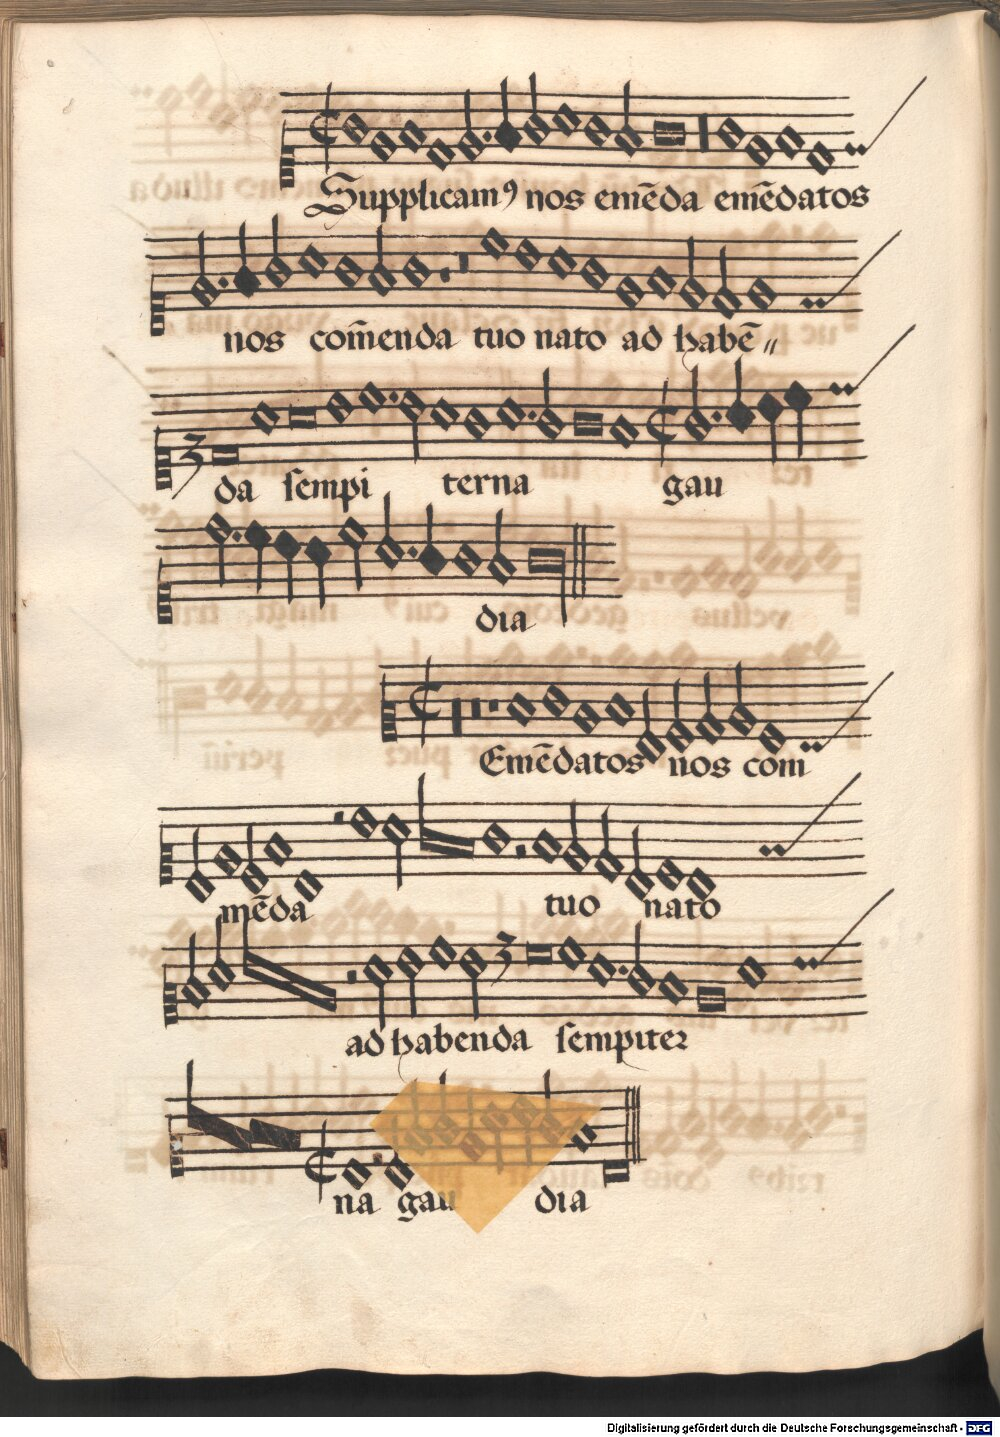 Supplicamꝰ nos emēda emēdatos
nos com̄enda tuo nato ad habē〃
da sempi terna gau
dia
Emēdatos nos com
mēda tuo nato
ad habenda sempiter
na gau dia
Digitalisierung gefördert durch die Deutsche Forschungsgemeinschaft - DFG